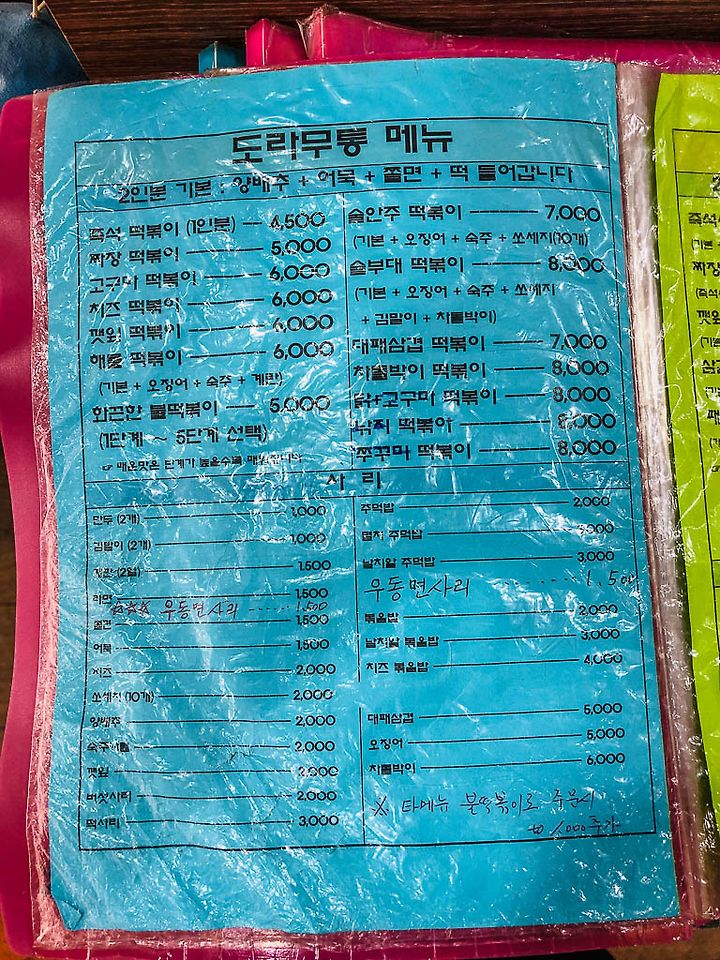 도라무통 메뉴
2인분 기본 : 양배추 + 어묵 + 쫄면 + 떡 들어갑니다
즉석 떡볶이 (1인분) 4,500
짜장 떡볶이 5,000
고구마 떡볶이 6,000
치즈 떡볶이 6,000
깻잎 떡볶이 6,000
해물 떡볶이 6,000
(기본 + 오징어 + 숙주 + 계란)
화끈한 불떡볶이 5,000
(1단계 ~ 5단계 선택)
☞ 매운맛은 단계가 높을수록 매워집니다
술안주 떡볶이 7,000
(기본 + 오징어 + 숙주 + 쏘세지(10개)
술부대 떡볶이 8,000
(기본 + 오징어 + 숙주 + 쏘세지
+ 김말이 + 차돌박이)
대패삼겹 떡볶이 7,000
차돌박이 떡볶이 8,000
닭+고구마 떡볶이 8,000
낙지 떡볶이 8,000
쭈꾸마 떡볶이 8,000
사 리
만두 (2개) 1,000
김말이 (2개) 1,000
계란 (2알) 1,500
라면 1,500
우동면사리 1.500
쫄면 1,500
어묵 1,500
치즈 2,000
쏘세지 (10개) 2,000
양배추 2,000
숙주나물 2,000
깻잎 2,000
버섯사리 2,000
떡사리 3,000
주먹밥 2,000
멸치 주먹밥 3,000
날치알 주먹밥 3,000
우동면사리 1.500
볶음밥 2,000
날치알 볶음밥 3,000
치즈 볶음밥 4,000
대패삼겹 5,000
오징어 5,000
차돌박이 6,000
※ 타메뉴 불떡볶이로 주문시
1,000 추가
즉석
(기본
짜장
(즉석
깻잎
(기
삼겹
(기